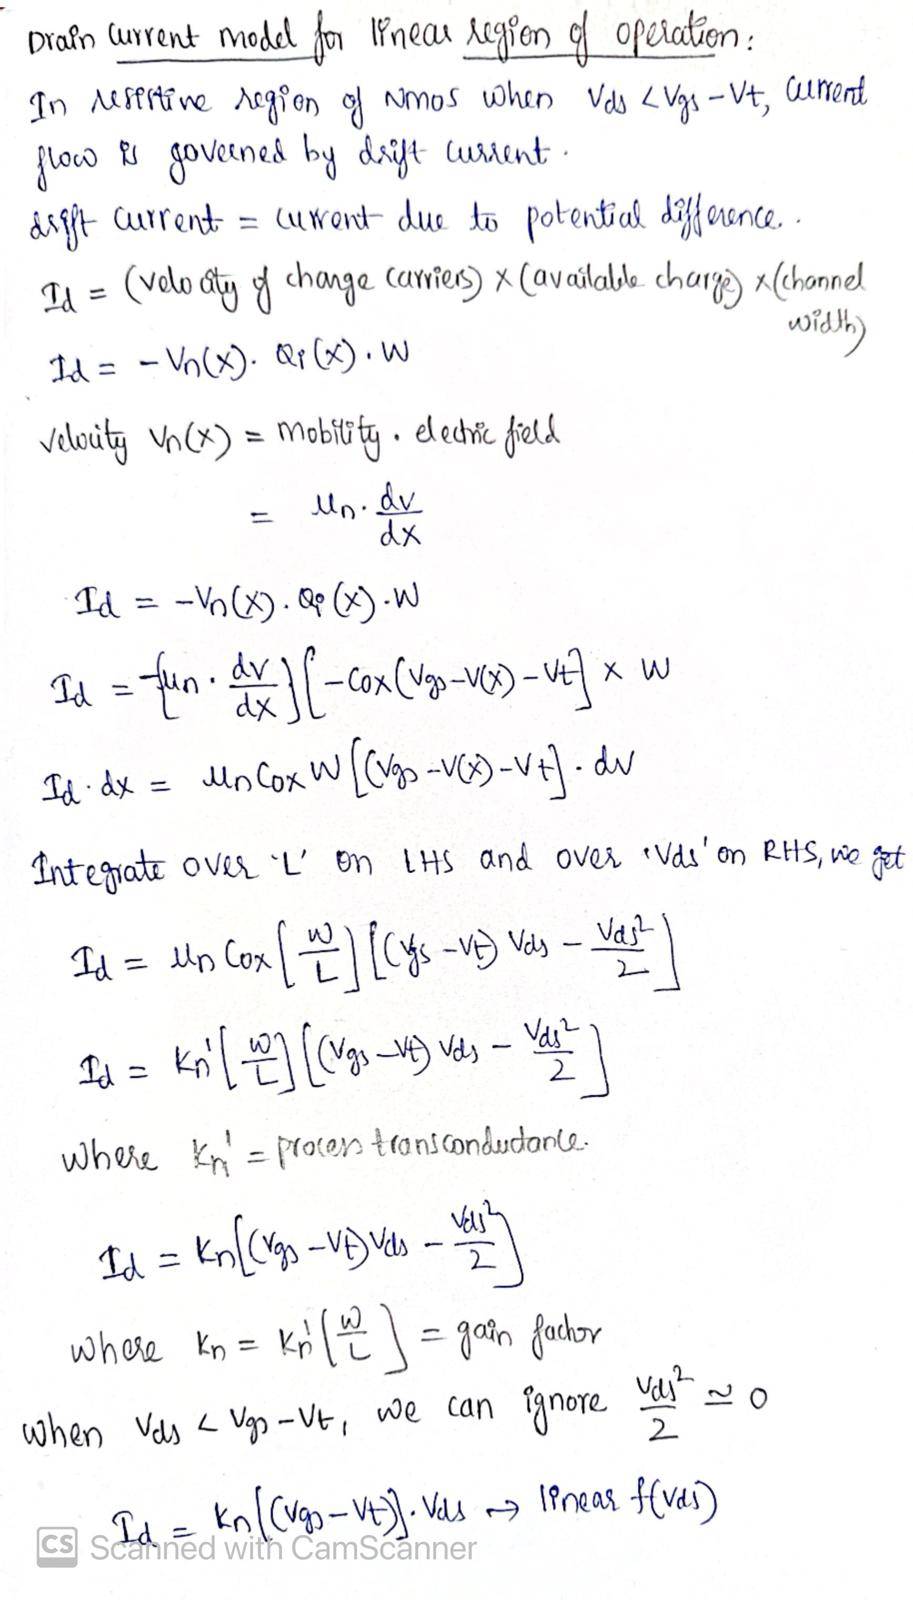 Drain Current model for linear region of operation:
In resistive region of Nmos when Vds < Vgs - Vt, Current
flow is governed by drift current.
drift current = current due to potential difference..
Id = (velocity of change carriers) x (available charge) x (channel
width)
Id = - Vn(x). Qi(x). W
velocity Vn(x) = mobility. electric field
= μn. dv/dx
Id = -Vn(x). Qi(x).W
Id = {μn. dv/dx} [-Cox(Vgs-V(x)-Vt] x W
Id. dx = μn Cox W [(Vgs-V(x)-Vt]. dv
Integrate over 'L' on LHS and over 'Vds' on RHS, we get
Id = μn Cox [W/L] [(Vgs-Vt) Vds - Vds²/2]
Id = Kn' [W/L] [(Vgs-Vt) Vds - Vds²/2]
where Kn' = process transconductance.
Id = Kn[(Vgs-Vt)Vds - Vds²/2]
where Kn = Kn' [W/L] = gain factor
when Vds < Vgs-Vt, we can ignore Vds²/2 ≃ 0
Id = Kn[(Vgs-Vt)]. Vds → linear f(Vds)
CS Scanned with CamScanner